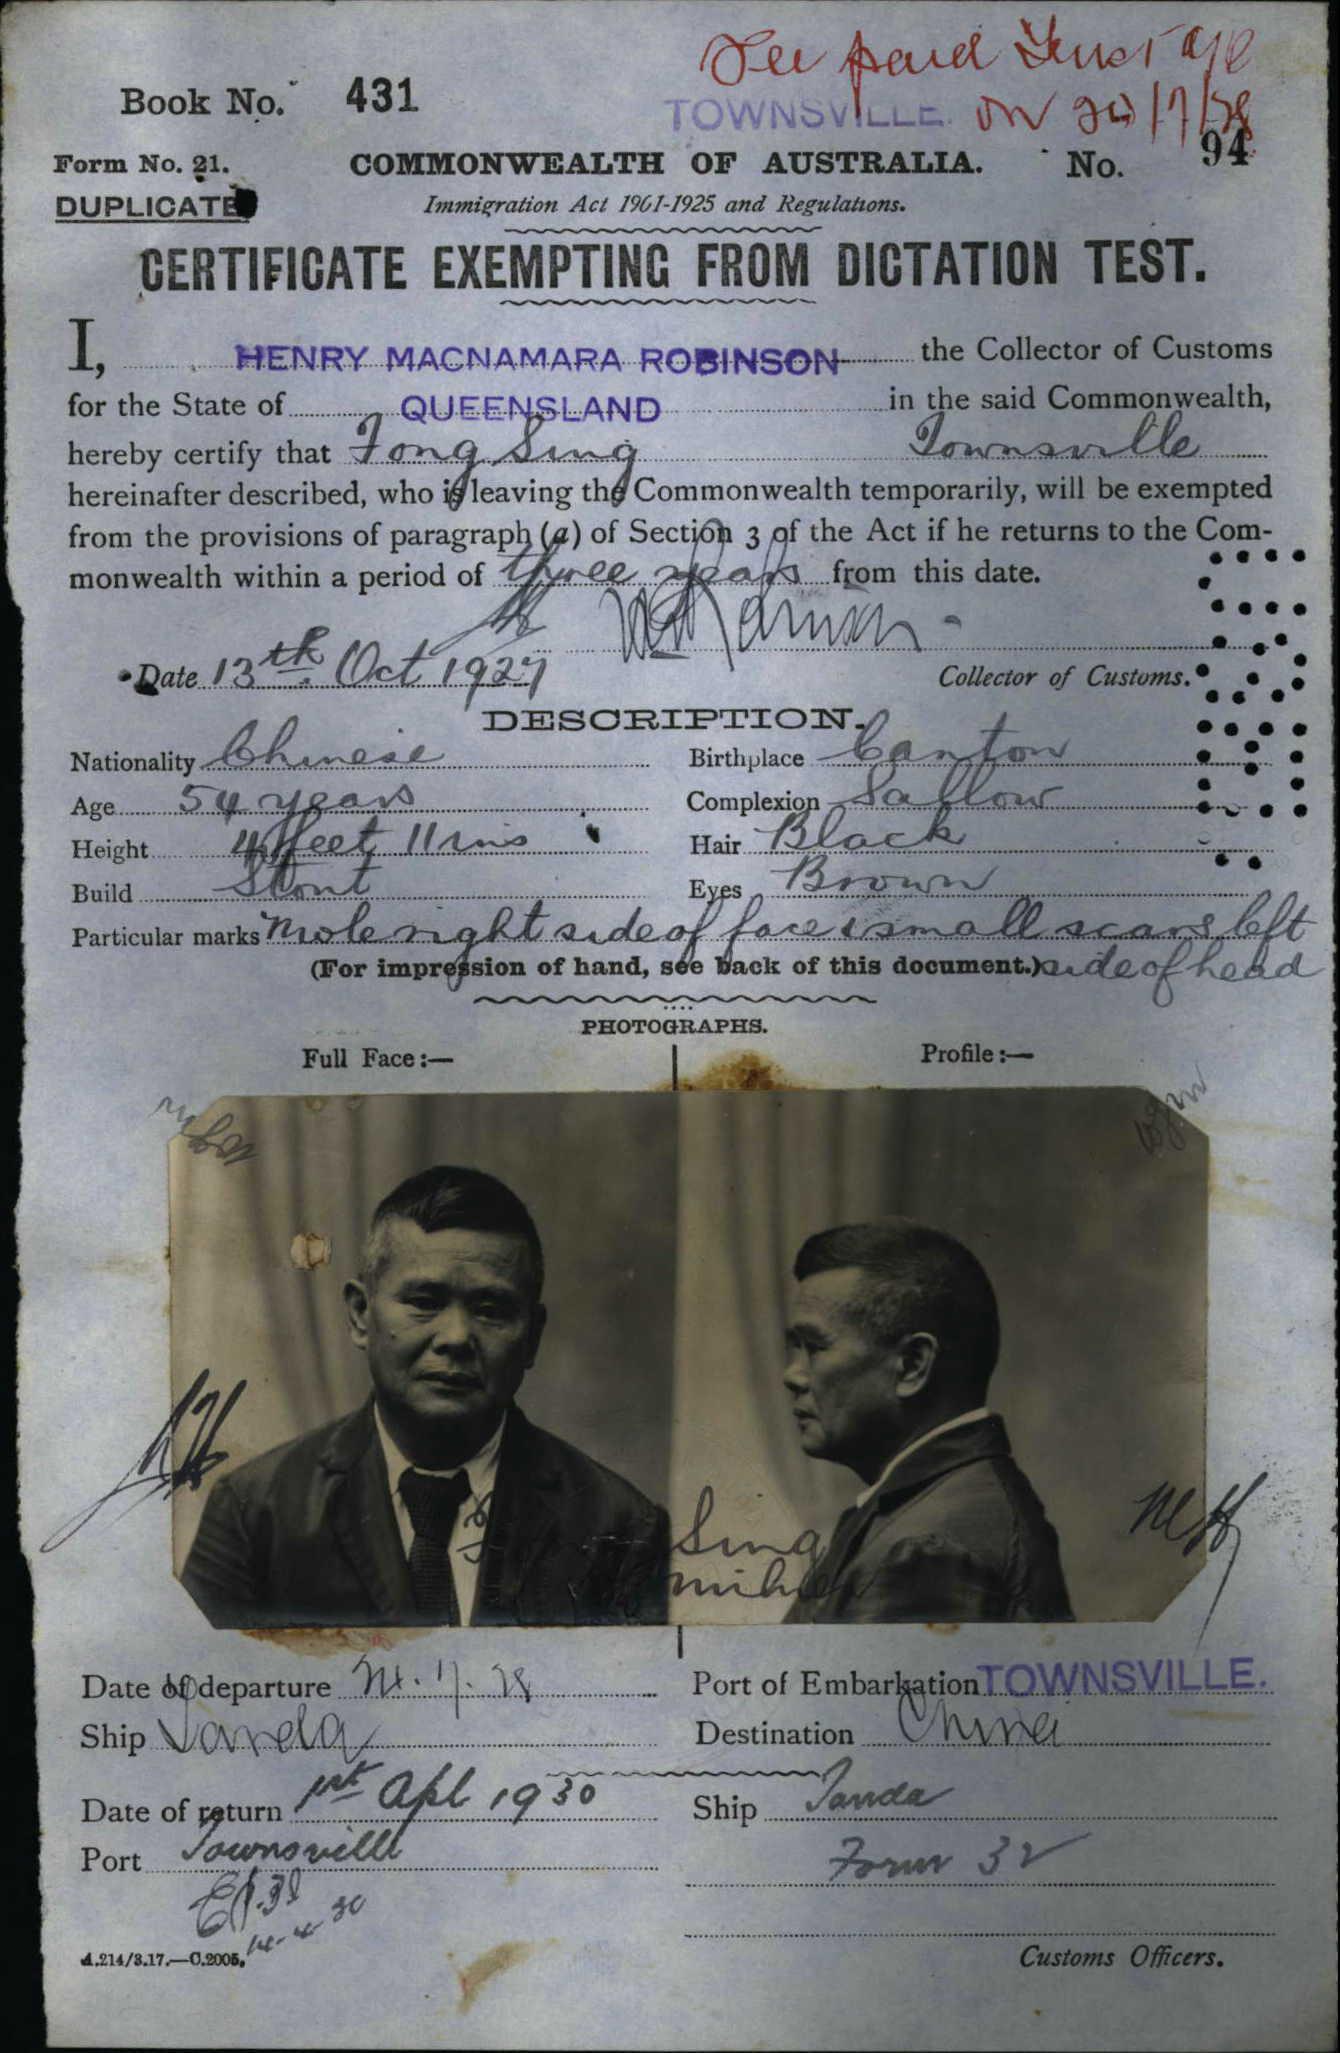 Fee paid Trust a/c
Book No. 431
TOWNSVILLE. on 20/7/28
Form No. 21. COMMONWEALTH OF AUSTRALIA. No. 94
DUPLICATE
Immigration Act 1901-1925 and Regulations.
CERTIFICATE EXEMPTING FROM DICTATION TEST.
I, HENRY MACNAMARA ROBINSON the Collector of Customs
for the State of QUEENSLAND in the said Commonwealth,
hereby certify that Fong Sing Townsville
hereinafter described, who is leaving the Commonwealth temporarily, will be exempted
from the provisions of paragraph (a) of Section 3 of the Act if he returns to the Com-
monwealth within a period of three years from this date.
Date 13th Oct 1927 Collector of Customs.
DESCRIPTION.
Nationality Chinese Birthplace Canton
Age 54 years Complexion Sallow
Height 4 feet 11 ins Hair Black
Build Stout Eyes Brown
Particular marks Mole right side of face & small scars left
(For impression of hand, see back of this document.) side of head
PHOTOGRAPHS.
Full Face:— Profile:—
Sing
Date of departure 7.28 Port of Embarkation TOWNSVILLE.
Ship Tanda Destination China
Date of return 1st Apl 1930 Ship Tanda
Port Townsville Form 32
14-4-30
A.214/3.17.—C.2005. Customs Officers.